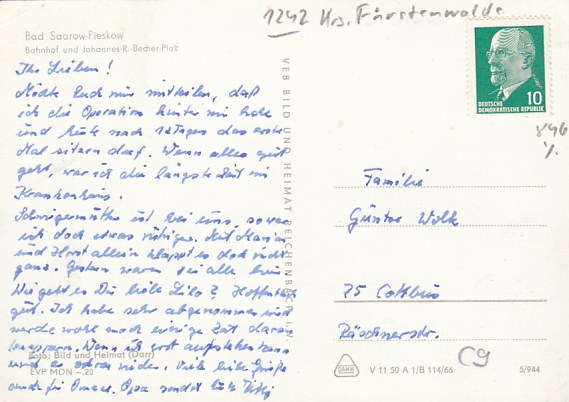 1242 Krs. Fürstenwalde
Bad Saarow-Pieskow
Bahnhof und Johannes-R.-Becher-Platz
Ihr Lieben!
Möchte Euch nur mitteilen, daß
ich die Operation hinter mir habe
und heute nach 12 Tagen das erste
Mal sitzen darf. Wenn alles gut
geht, war ich die längste Zeit im
Krankenhaus.
Schwiegermutter ist bei uns, so war
ich doch etwas ruhiger. Mit
und Horst allein klappt es doch nicht
ganz. Gestern waren sie alle hier.
Wie geht es Dir liebe Lilo? Hoffentlich
gut. Ich habe sehr abgenommen und
werde wohl noch einige Zeit daran
Wenn ich erst aufstehen kann
wird es schon wieder. Viele liebe Grüße
auch für Oma u. Opa sendet Eure
Foto: Bild und Heimat (Darr)
EVP MDN -,20
VEB BILD UND HEIMAT REICHENBACH I. V.
DEUTSCHE
DEMOKRATISCHE REPUBLIK
10
846
Familie
Günter Wolk
75 Cottbus
C9
V 11 50 A 1/B 114/65
5/944